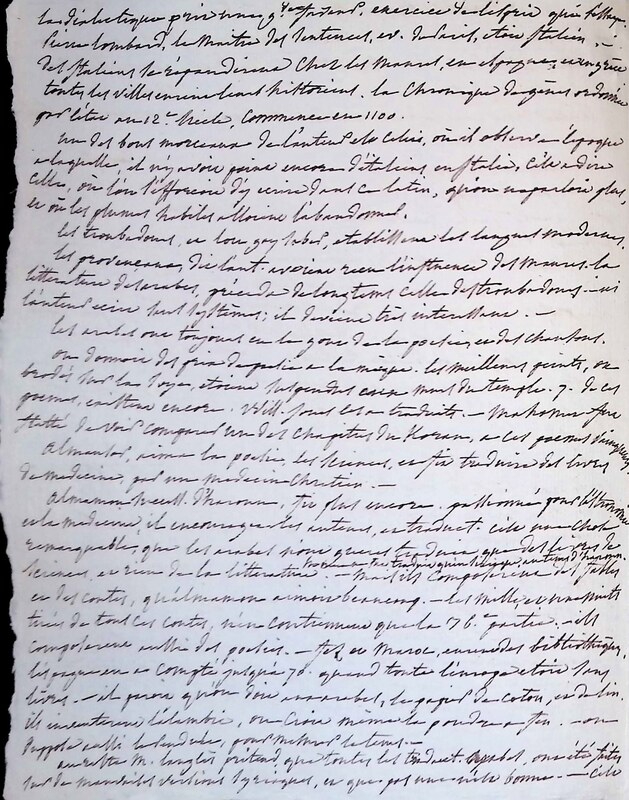 la dialectique prit un
Pierre Lombard, le Maitre des Sentences, ev. de Paris, etoit Italien. —
des Italiens se repandirent chez les Maures, en espagne, en grèce
toutes les villes eurent leurs historiens. la Chronique de gênes ordonnée
par l'état au 12e siecle, commence en 1100.
un des bons morceaux de l'auteur est celui, où il observe l'époque
a laquelle il n'y avoit point encore d'italien, en Italie, c'est a dire
celle, où l'on s'efforçoit d'y ecrire dans ce latin, qu'on ne parloit plus,
et où les plumes habiles alloient l'abandonner.
les troubadours, et leur gay saber, etablissent les langues modernes.
les provençaux, dit l'aut. avoient reçu l'influence des Maures. la
litterature des arabes, précéda de longtems celle des troubadours. — ici
l'auteur ecrit sans systèmes; il devient très interessant. —
les arabes ont toujours eu le gout de la poësie, et des chansons.
on donnoit des prix de poësie a la mèque. les meilleures pièces, ou
brodés sur la soye, etoient suspendus aux murs du temple. 7. de ces
poemes, existent encore. Will. Jones les a traduits. — Mahomet fut
flatté de voir comparer un des chapitres du Koran, a ces poemes
Almansor, aima la poësie, les sciences, et fit traduire des livres
de medecine, par un medecin Chretien. —
Almamon, d'haroun, fit plus encore. passionné pour l'astronomie
et la medecine, il encouragea les auteurs, et traduct. c'est une chose
remarquable, que les arabes n'ont gueres traduit, que des livres de
sciences, et rien de la litterature. — Mais ils composerent des fables
et des contes, qu'almamon aimoit beaucoup. — les mille et une nuits
tirés de tous ces contes, n'en contiennent que la 36e partie. — ils
composerent aussi des poësies. — fez, et Maroc, eurent des bibliothèques,
l'espagne en a compté jusqu'a 70. quand toute l'europe etoit sans
livres. — il paroit qu'on doit aux arabes, le papier de coton, et de lin.
ils inventerent l'alambic, on croit même la poudre a feu. — on
aussi le pendule, pour mesurer le tems. —
au reste M. langlès prétend, que toutes les traduct. arabes, ont été faites
sur de mauvaises versions syriaques, et que pas une n'est bonne. — c'est